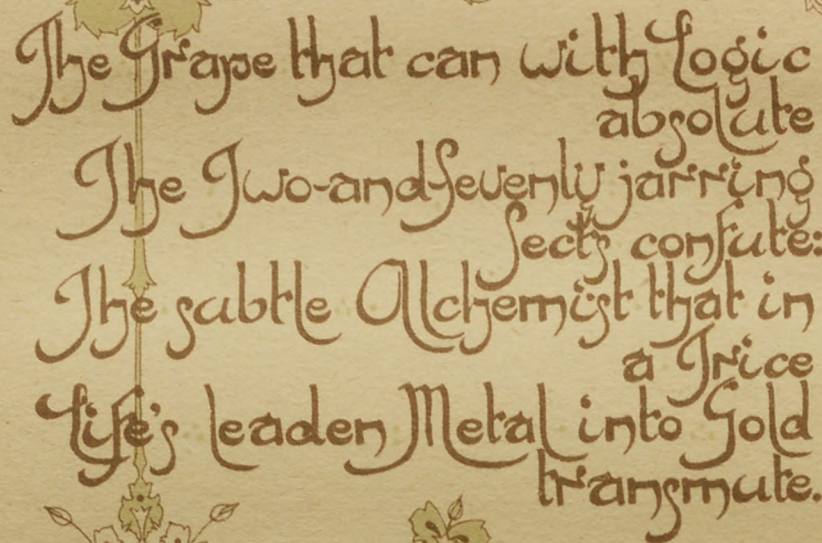 The Grape that can with Logic
absolute
The Two-and-Sevenly jarring
Sects confute:
The subtle Alchemist that in
a Trice
Life's leaden Metal into Gold
transmute.